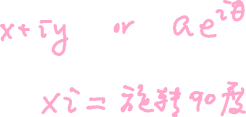 x+iy or ae^{iθ}
xi = 旋转90度